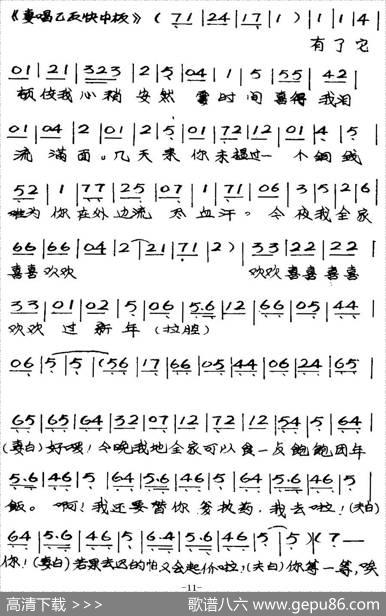 《妻唱乙反快中板》(71|24|17|1)|1|1|4|
有了它
01|21|323|2|5|04|1|5|55|42|
顿使我心稍安然 霎时间喜得我泪
01|04|2|01|2|5|01|72|12|01|4|5|
流满面。几天来你未提过一个铜钱
52|1|77|25|07|1|71|06|3|5|2|6|
为你在外边流尽血汗。今夜我全家
66|66|04|2|21|71|2)|33|22|22|
喜喜欢欢 欢欢喜喜喜喜
33|01|02|5|06|5.6|12|66|05|44|
欢欢过新年(拉腔)
06|5|5|(56|17|66|05|44|06|24|65|
65|65|64|32|07|12|72|12|54|5|64|
(妻白)好哦!今晚我地全家可以食一反饱饱团年
5.6|46|5|64|5.6|46|5|64|5.6|46|5|
饭。啊!我还要替你执药,我去啦!(夫白)
64|5.6|46|5|64|5.6|46|5|64|5.6|46|5|5)|(7—
你!(妻白)若果去迟的怕又会起价啦!(夫白)你等一等,唉
-11-
高清下载 >>> 歌谱八六 www.gepu86.com